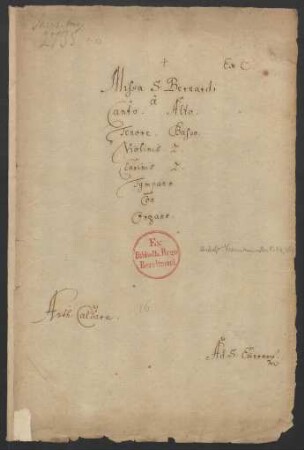 2735
Ex C.
Missa S. Bernardi
à
Canto. Alto.
Tenore. Basso.
Violinis 2.
Clarinis 2.
Tympano
Con
Organo.
Ex
Biblioth. Regia
Berolinensi.
16
Antº Caldara.
Ad S.